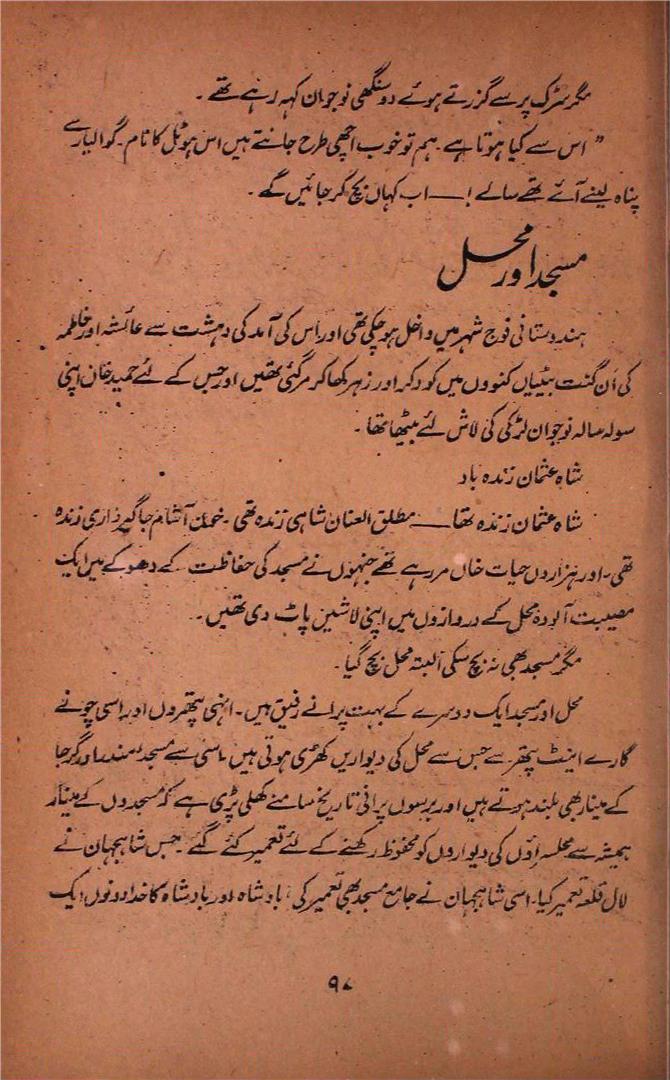 مگر سڑک پر سے گزرتے ہوئے دو سنگھی نوجوان کہہ رہے تھے۔
” اس سے کیا ہوتا ہے۔ ہم تو خوب اچھی طرح جانتے ہیں اس ہوٹل کا نام۔ گوالیار سے
پناہ لینے آئے تھے سالے! — اب کہاں بچ کر جائیں گے۔
مسجد اور محل
ہندوستانی فوج شہر میں داخل ہو چکی تھی اور اس کی آمد کی دہشت سے عائشہ اور فاطمہ
کی اَن گنت بیٹیاں کنووں میں کود کر اور زہر کھا کر مر گئی تھیں اور جس کے لئے حمید خان اپنی
سولہ سالہ نوجوان لڑکی کی لاش لئے بیٹھا تھا۔
شاہ عثمان زندہ باد
شاہ عثمان زندہ تھا — مطلق العنان شاہی زندہ تھی۔ خون آشام جاگیرداری زندہ
تھی۔ اور ہزاروں حیات خاں مر رہے تھے جنہوں نے مسجد کی حفاظت کے دھوکے میں ایک
مصیبت آلودہ محل کے دروازوں میں اپنی لاشیں پاٹ دی تھیں۔
مگر مسجد بھی نہ بچ سکی البتہ محل بچ گیا۔
محل اور مسجد ایک دوسرے کے بہت پرانے رفیق ہیں۔ انہی پتھروں اور اسی چونے
گارے اینٹ پتھر سے جس سے محل کی دیواریں کھڑی ہوتی ہیں۔ اسی سے مسجد، مندر اور گرجا
کے مینار بھی بلند ہوتے ہیں اور برسوں پرانی تاریخ سامنے کھلی پڑی ہے کہ مسجدوں کے مینار
ہمیشہ سے محلسراؤں کی دیواروں کو محفوظ رکھنے کے لئے تعمیر کئے گئے۔ جس شاہجہان نے
لال قلعہ تعمیر کیا۔ اسی شاہجہان نے جامع مسجد بھی تعمیر کی، بادشاہ اور بادشاہ کا خدا دونوں ایک
۹۷